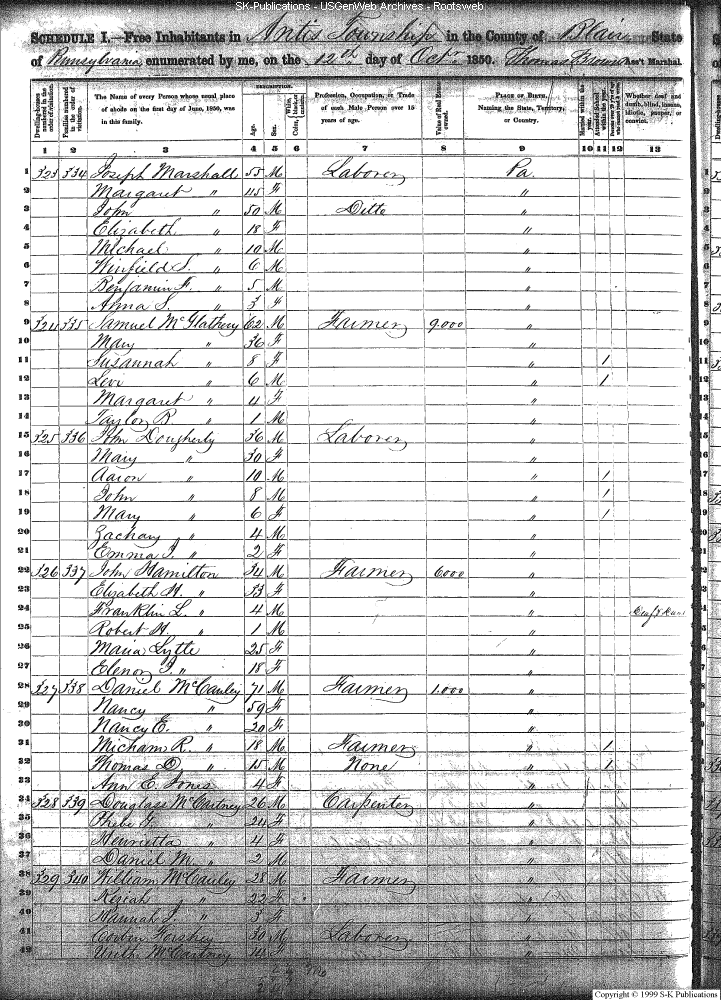 SK-Publications - USGenWeb Archives - Rootsweb
SCHEDULE I.—Free Inhabitants in Antis Township in the County of Blair State
of Pennsylvania enumerated by me, on the 12th day of Octr. 1850. Thomas Ass't Marshal.
DESCRIPTION.
Dwelling-houses numbered in the order of visitation. Families numbered in the order of visitation. The Name of every Person whose usual place of abode on the first day of June, 1850, was in this family. Age. Sex. Color, White, black, or mulatto. Profession, Occupation, or Trade of each Male Person over 15 years of age. Value of Real Estate owned. PLACE OF BIRTH. Naming the State, Territory, or Country. Married within the year. Attended School within the year. Whether deaf and dumb, blind, insane, idiotic, pauper, or convict.
1 2 3 4 5 6 7 8 9 10 11 12 13
1 323 334 Joseph Marshall 55 M Laborer Pa.
2 Margaret " 45 F "
3 John " 50 M Ditto "
4 Elizabeth " 18 F "
5 Michael " 10 M "
6 Winfield S. " 6 M "
7 Benjamin F. " 5 M "
8 Anna S. " 3 F "
9 324 335 Samuel McGlathery 62 M Farmer 9.000 "
10 Mary " 36 F "
11 Susannah " 8 F " 1
12 Levi " 6 M " 1
13 Margaret " 4 F "
14 Taylor R " 1 M "
15 325 336 John Dougherty 36 M Laborer "
16 Mary " 30 F "
17 Aaron " 10 M " 1
18 John " 8 M " 1
19 Mary " 6 F " 1
20 Zachary " 4 M "
21 Emma J. " 2 F "
22 326 337 John Hamilton 34 M Farmer 6000 "
23 Elizabeth H. " 33 F "
24 Franklin L. " 4 M " Deaf &
25 Robert H. " 1 M "
26 Maria Lytle 25 F "
27 Elenor J. " 18 F "
28 327 338 Daniel McCauley 71 M Farmer 1.000 "
29 Nancy " 59 F "
30 Nancy E. " 20 F "
31 Micham R. " 18 M Farmer " 1
32 Thomas D. " 15 M None " 1
33 Ann E. Jones 4 F "
34 328 339 Douglass McCartney 26 M Carpenter "
35 Phebe G. " 24 F "
36 Henrietta " 4 F "
37 Daniel M. " 2 M "
38 329 340 William McCauley 28 M Farmer "
39 Keziah " 22 F "
40 Hannah J. " 3 F "
41 Forshey 30 M Laborer "
42 McCartney F "
Copyright © 1999 S-K Publications